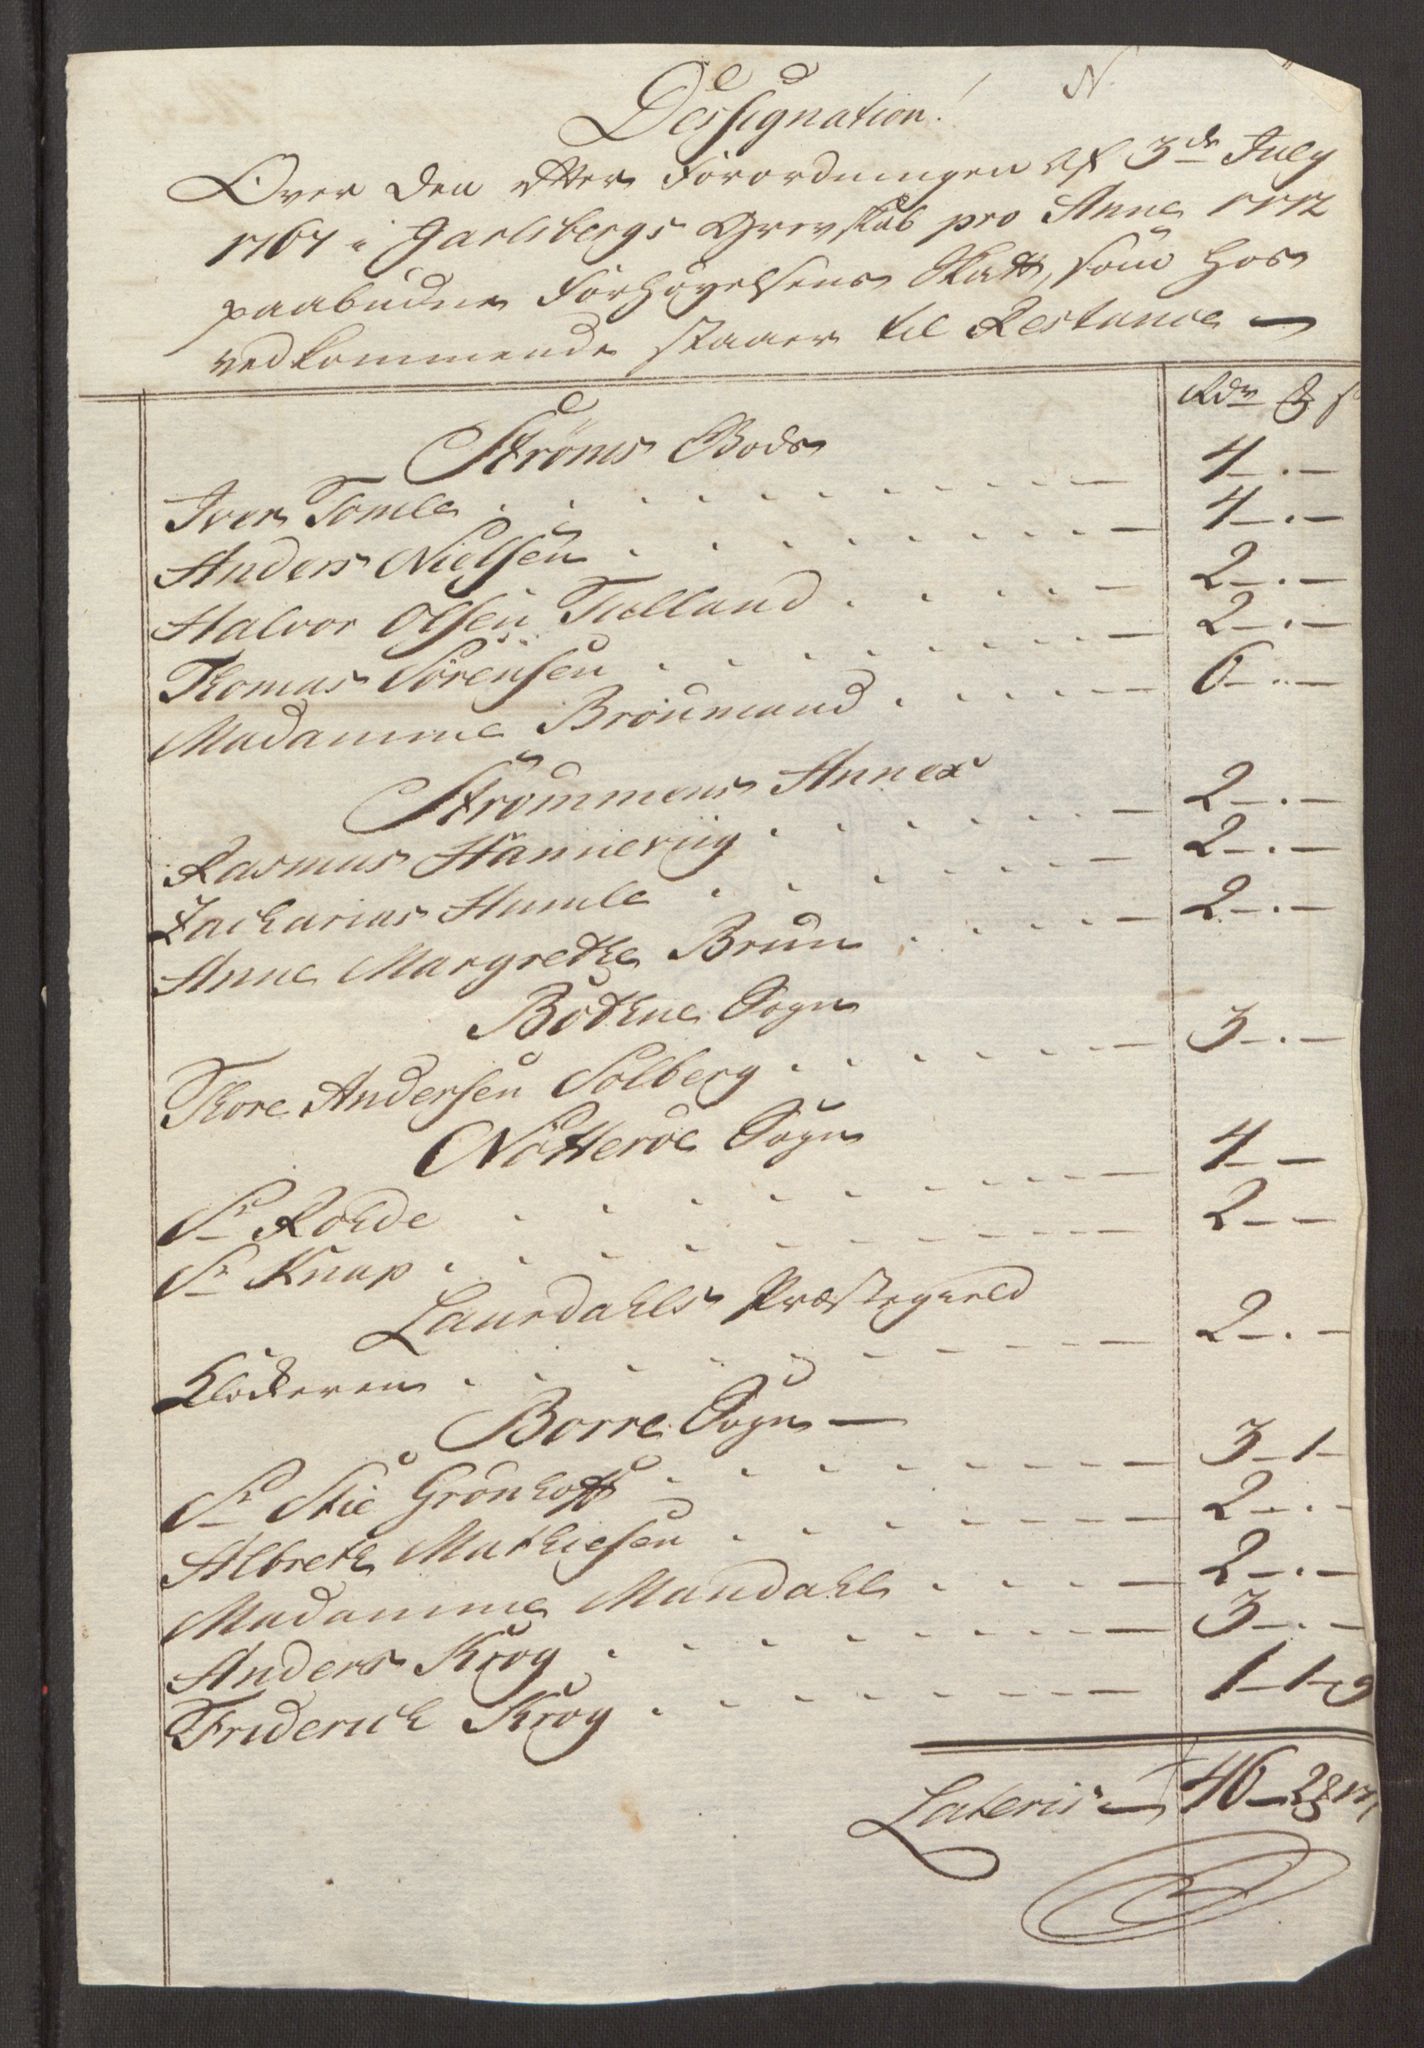 N.
Dessignation!
Over den efter Forordningen af 3de July
1767 i Jarlsbergs Grevskab pro Anno 1772
paabudne Forhøyelsens Skatt, som hos
vedkommende staaer til Restance —
Rdr ß
Strøms Bods
Iver Tomle . . . . . . . . — 4 — . —
Anders Nielsen . . . . . . . — 4 — . —
Halvor Olsen Tulland . . . . . — 2 — . —
Thomas Sørensen . . . . . . . — 2 — . —
Madamme Brøumand . . . . — 6 — . —
Strømmens Annex
Rasmus Hanneviig . . . . . . — 2 — . —
Zacharias Humle . . . . . . — 2 — . —
Anne Margrethe Brun . . . — 2 — . —
Bothne Sogn
Thore Andersen Solberg . . . . . — 3 — . —
Nøtterøe Sogn
Sr Rohde . . . . . . . . — 4 — —
Sr Knap . . . . . . . . — 2 — —
Laurdahls Præstegield
Klockeren . . . . . . . — 2 — . —
Borre Sogn —
Sr Stie Grønhoff . . . . . . . — 3 — 1 —
Albreth Mathiesen . . . . . . — 2 — . —
Madamme Mandahl . . . . — 2 — . —
Anders Krog . . . . . . . — 3 — . —
Friderich Krog . . . . . . . — 1 — 1 — 9
Lateris — 46 — 2